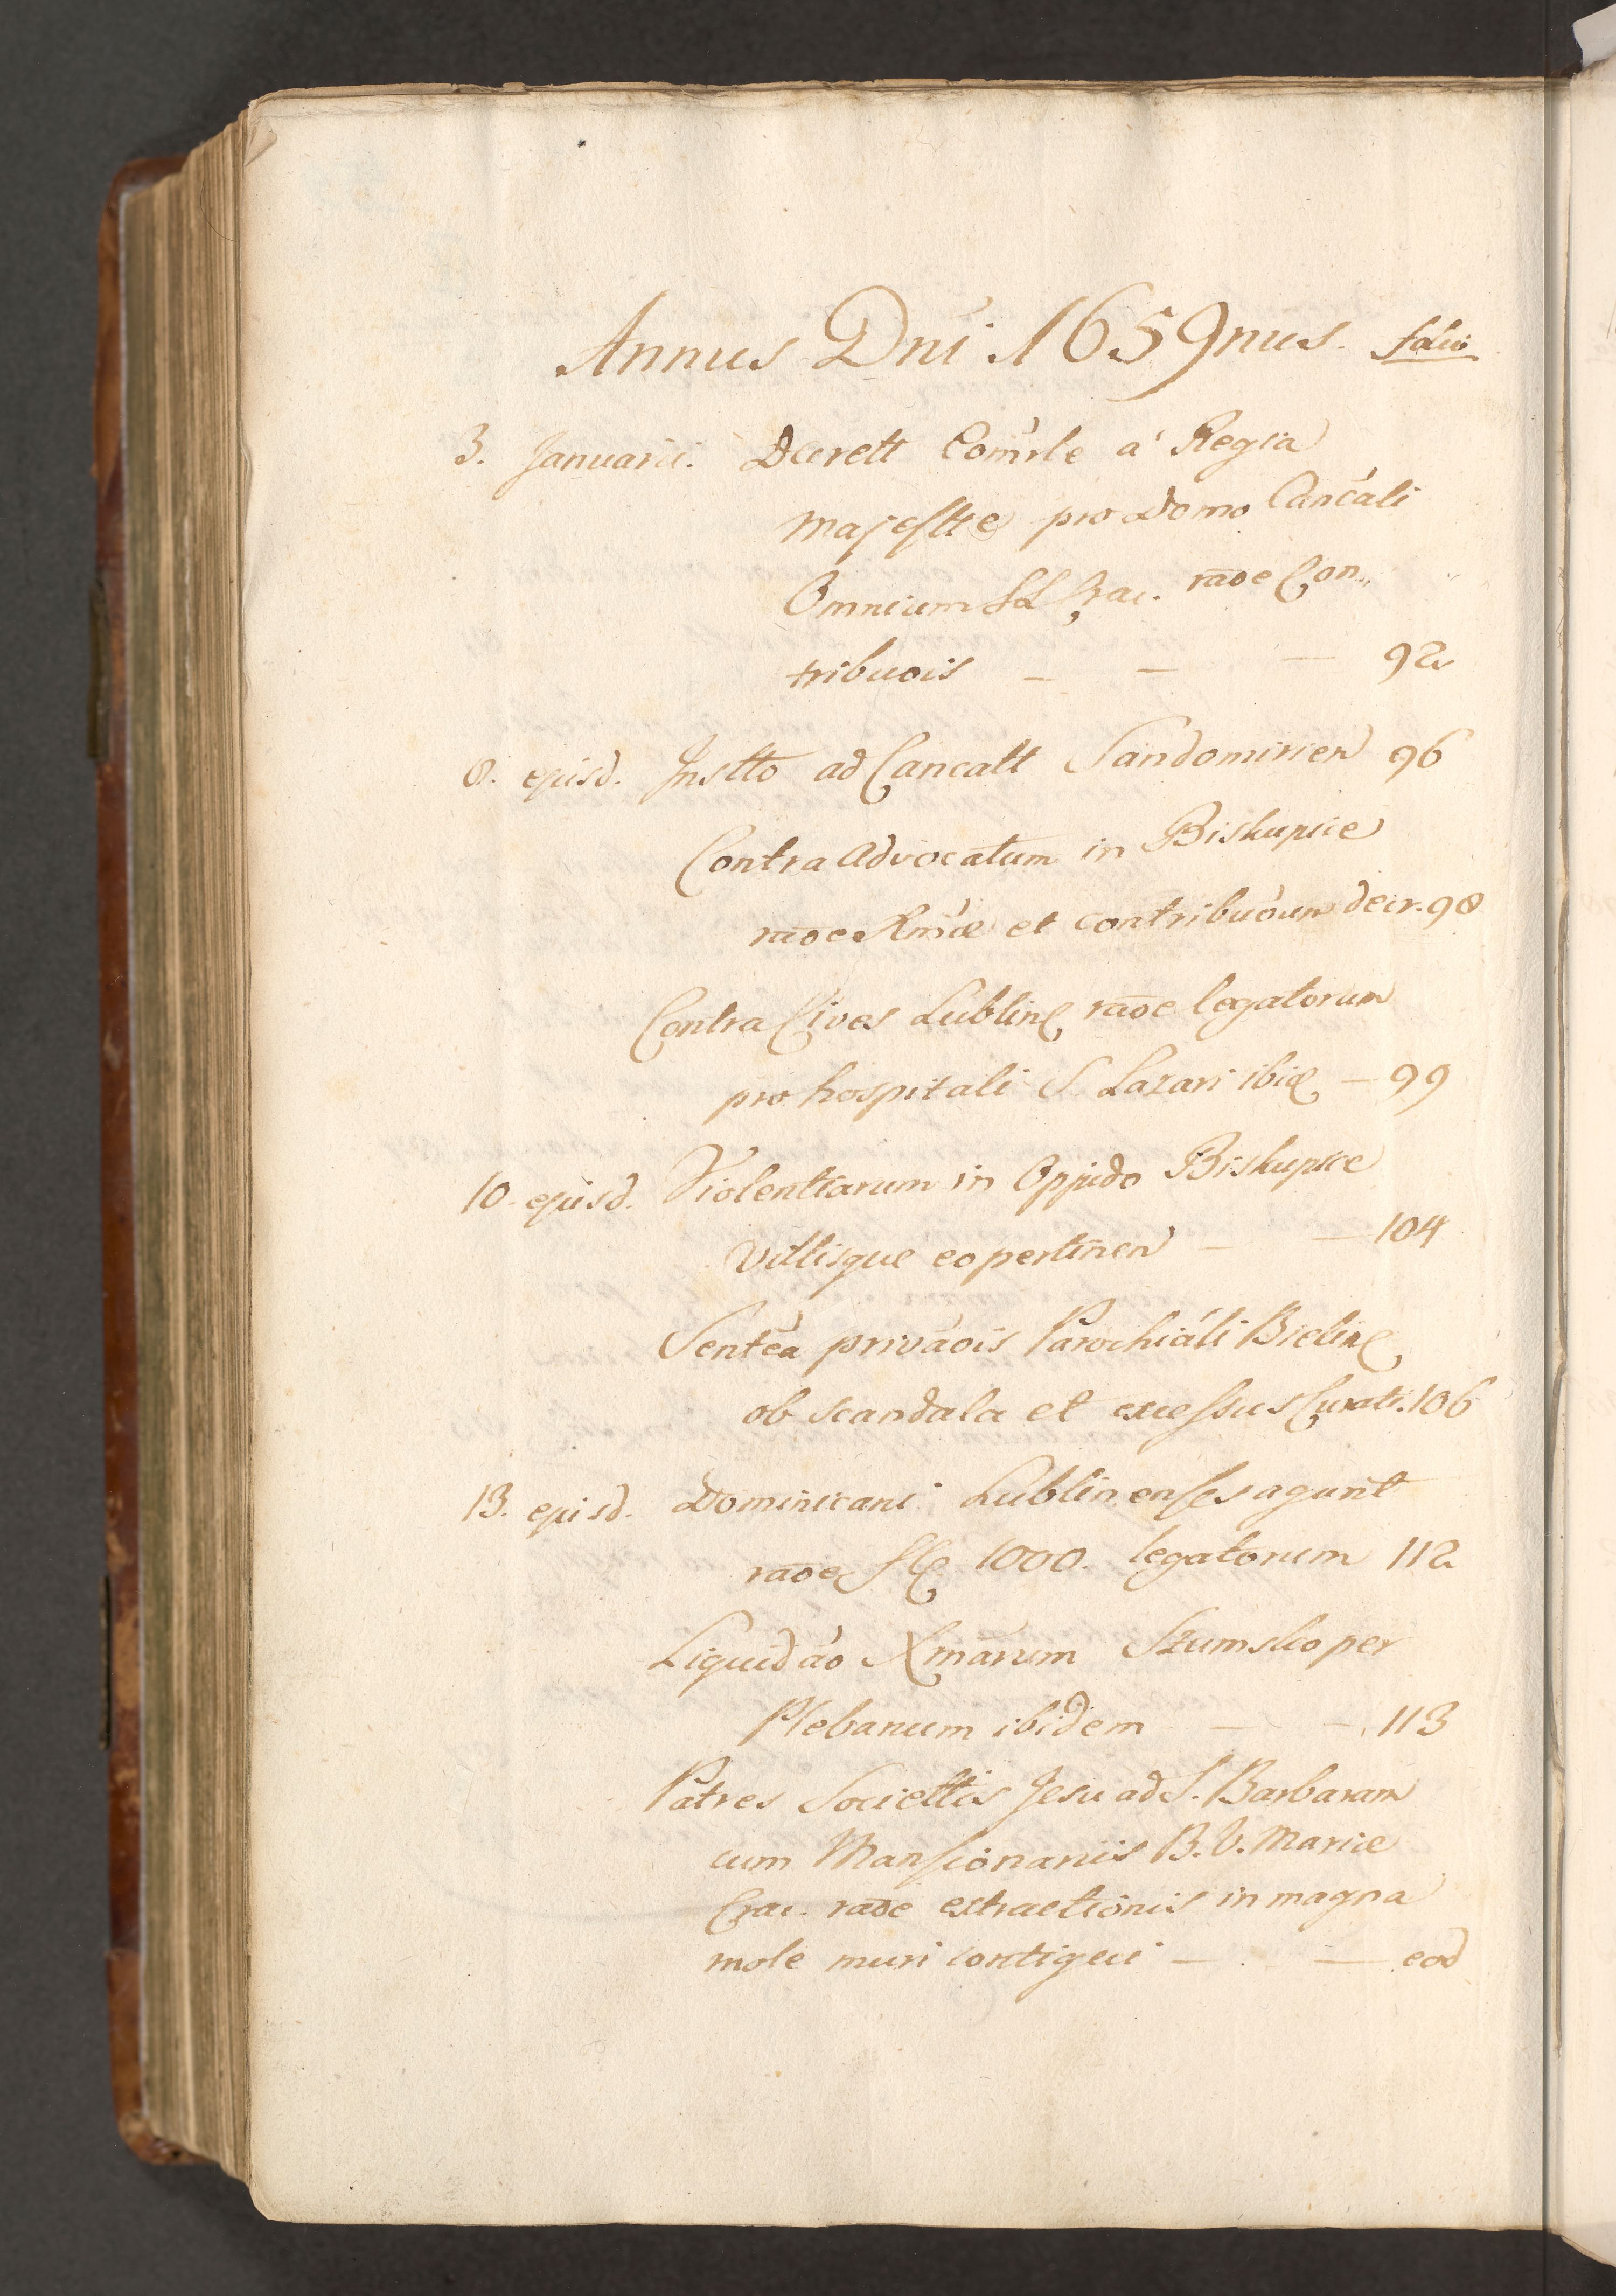 Annus Dni 1659nus. folio
3. Januarii. Decrett Com̃rle a Regia
Majestte pro Domo Canc̃ali
Omnium SS Crac. rãoe Con„
tribuois — — — 92
8. ejusd. Instto ad Cancatt Sandomirien 96
Contra Advocatum in Biskupice
rãoe Xm̃æ et contribuõum decr. 98
Contra Cives Lublin rãoe legatorum
pro hospitali S. Lazari ibid — 99
10. ejusd. Violentiarum in Oppido Biskupice
Villisque eo pertinen — — 104
Sentẽa privãois Parochiali Bielin
ob scandala et excessus Curati. 106
13. ejusd. Dominicani Lublinenses agunt
rãoe fl 1000. legatorum 112
Liquidão Xmãrum Szumsko per
Plebanum ibidem — — 113
Patres Societtis Jesu ad S. Barbaram
cum Mansionariis B. V. Mariæ
Crac. rãoe extractionis in magna
mole muri contigui — — eod